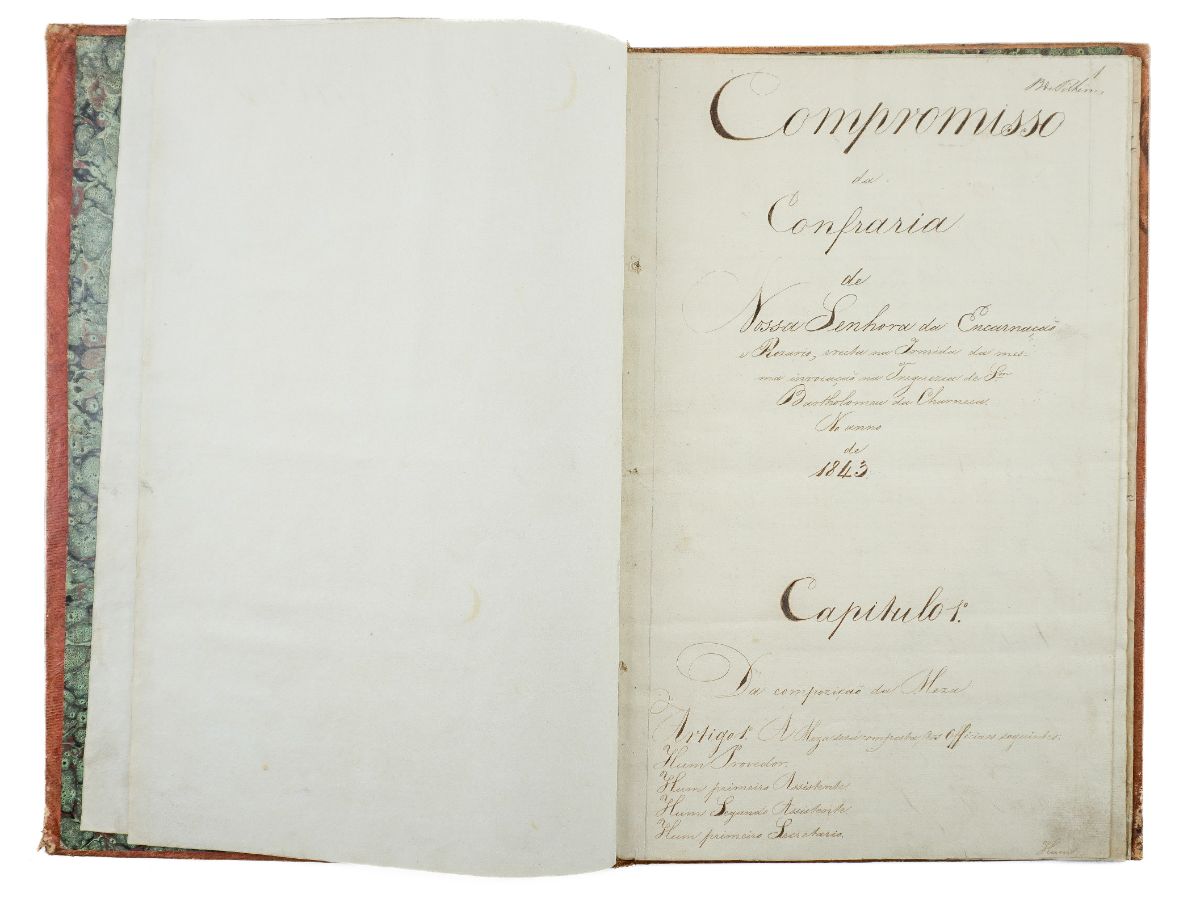 1
Compromisso
da
Confraria
de
Nossa Senhora da Encarnação
e Rozario, erecta na Irmida da mes-
ma invocação na Freguezia de Sm
Bartholomeu da Charneca.
No anno
de
1843
Capitulo 1.º
Da compozição da Meza
Artigo 1º A Meza será composta dos Officiaes seguintes.
Hum Provedor.
Hum primeiro Assistente.
Hum Segundo Assistente
Hum primeiro Secretario.
Hum